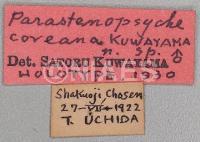 Parastenopsyche
coreana KUWAYAMA
n. sp. ♂
Det. SATORU KUWAYAMA
HOLOTYPE 1930
Shakuoji, Chosen
27-VII-1922
T. UCHIDA